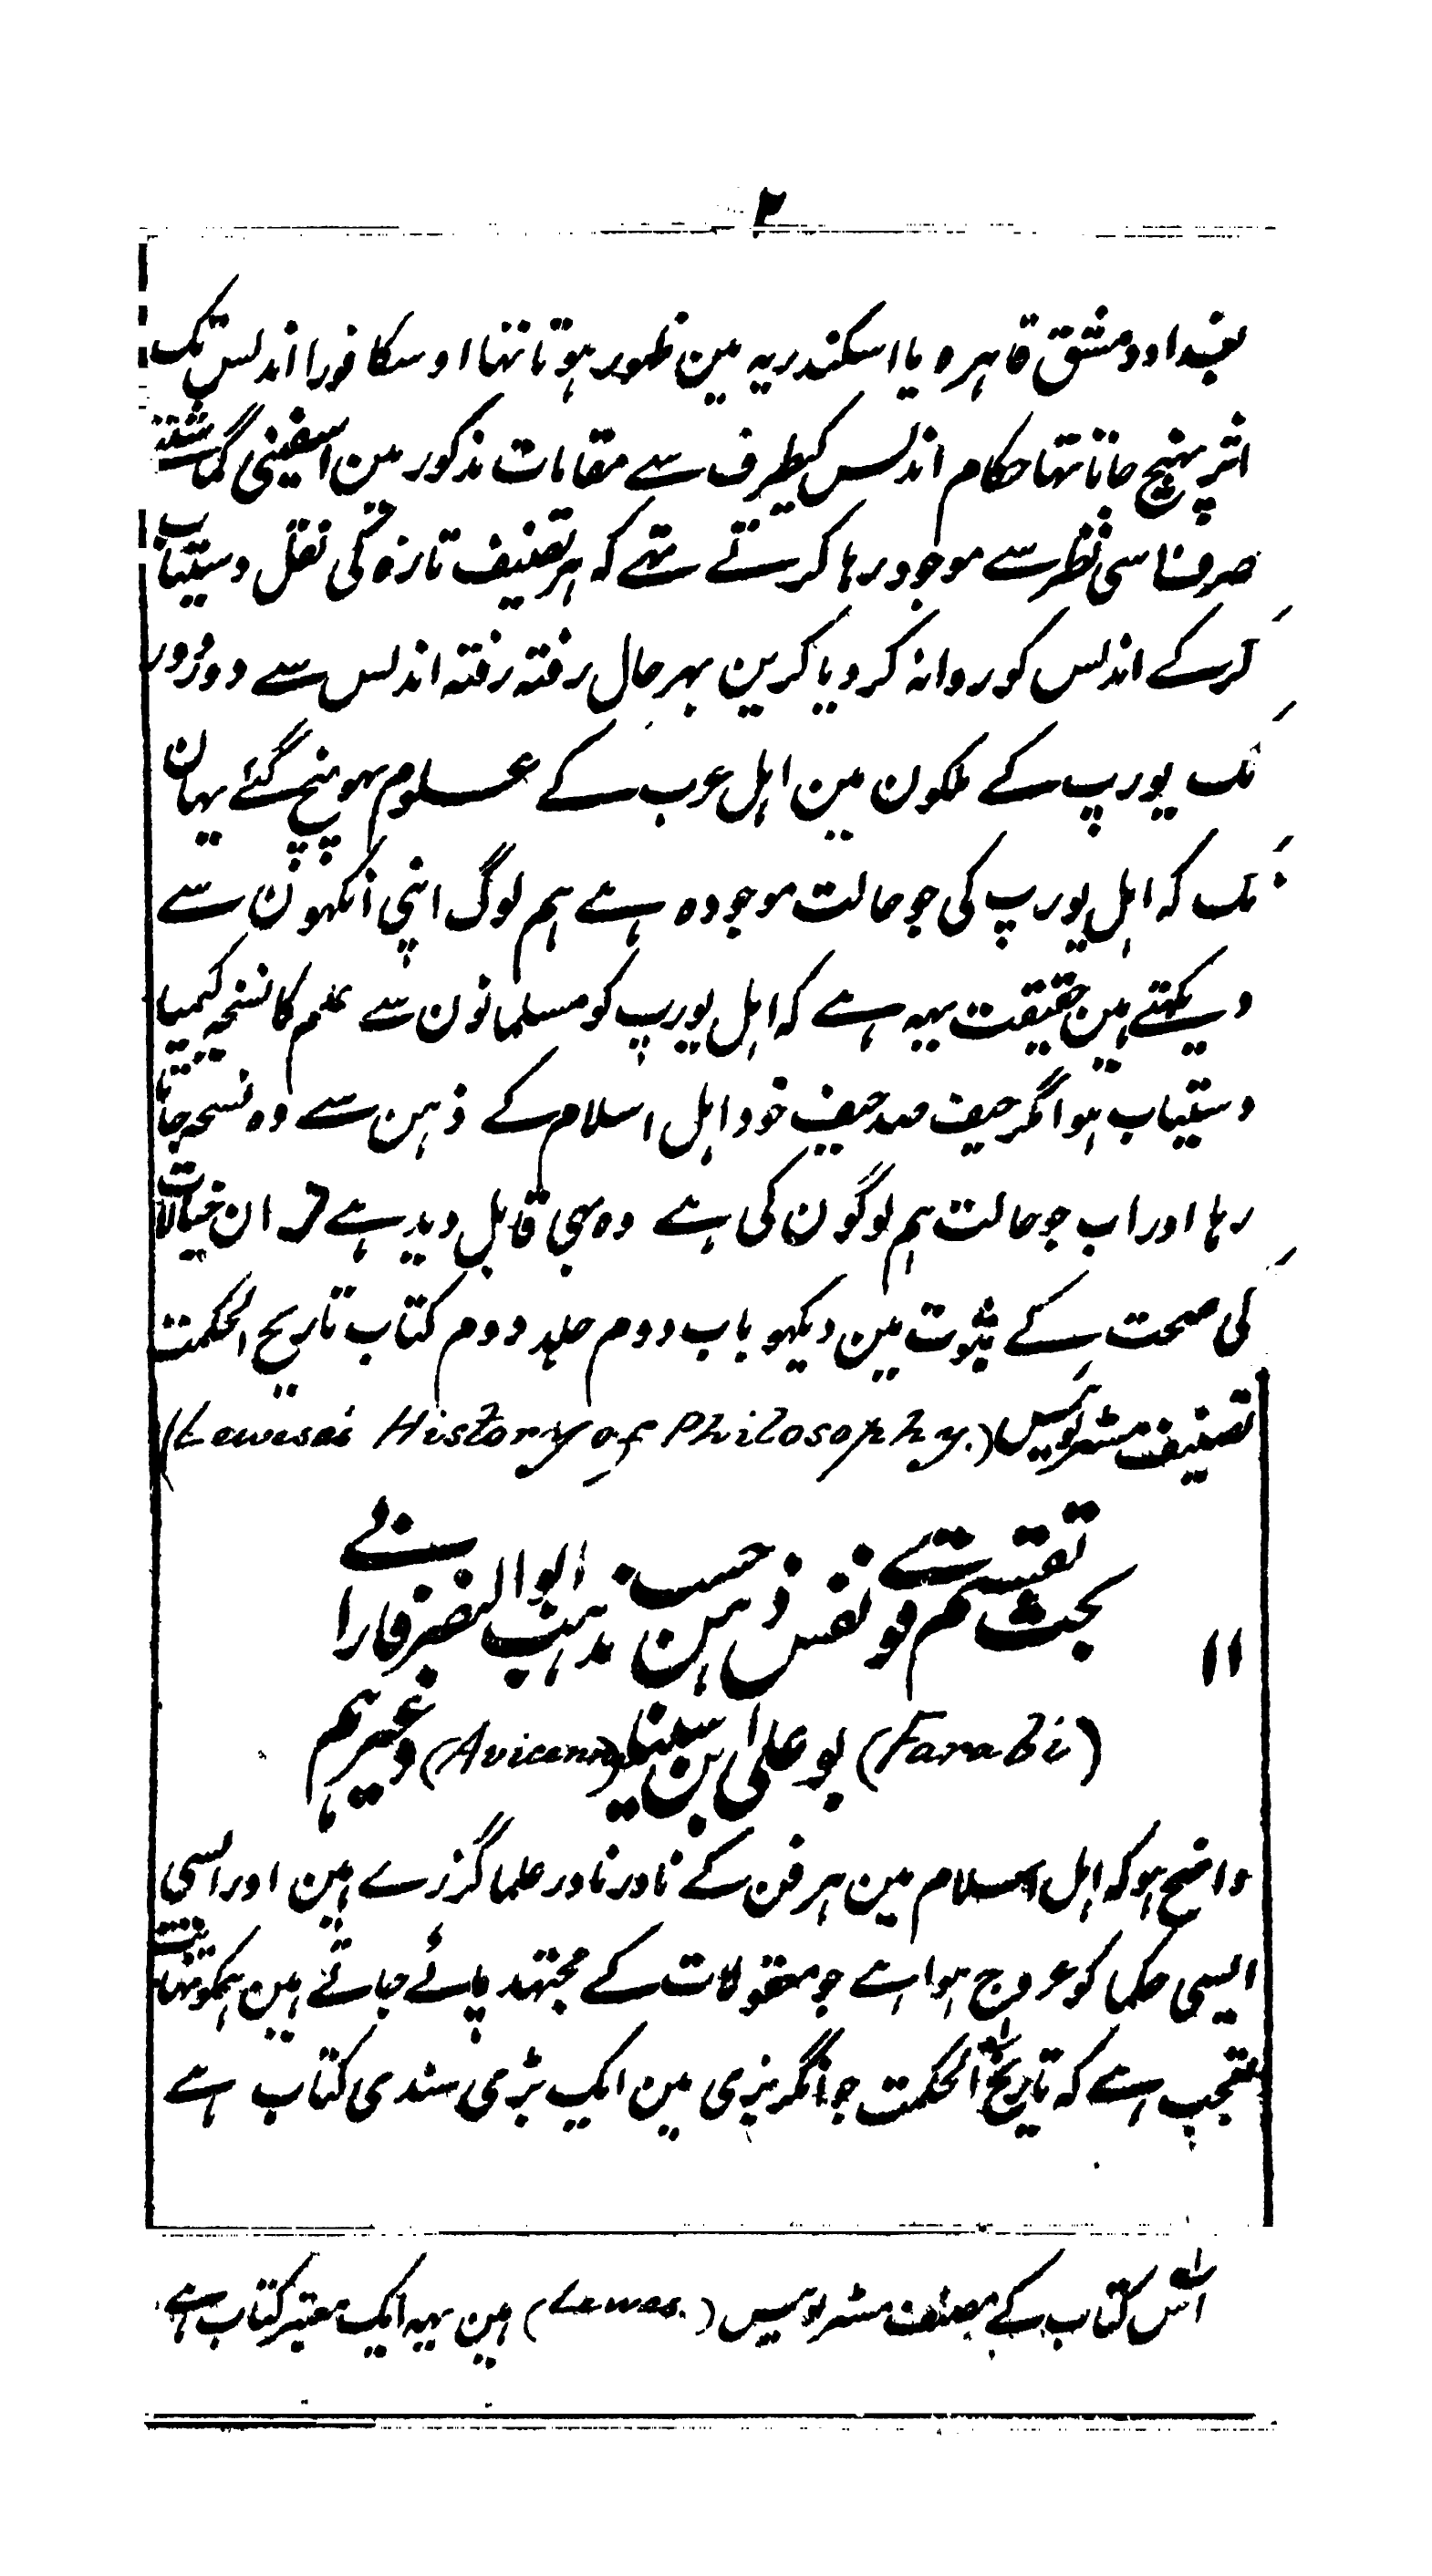 ۲
بغداد و دمشق قاہرہ یا اسکندریہ مین ظہور ہوتا تہا اوسکا فورا اندلس تک
اثر پہنچ جاتا تہا حکام اندلس کیطرف سے مقامات مذکور مین اسفینی گماشتے
صرف اسی نظر سے موجود رہا کرتے تہے کہ ہر تصنیف تازہ کی نقل دستیاب
کرکے اندلس کو روانہ کر دیا کرین بہر حال رفتہ رفتہ اندلس سے دور دور
تک یورپ کے ملکون مین اہل عرب کے علوم پہونچ گئے یہان
تک کہ اہل یورپ کی جو حالت موجودہ ہے ہم لوگ اپنی آنکہون سے
دیکہتے ہین حقیقت یہہ ہے کہ اہل یورپ کو مسلمانون سے علم کا نسخہ کیمیا
دستیاب ہوا مگر حیف صد حیف خود اہل اسلام کے ذہن سے وہ نسخہ جاتا
رہا اور اب جو حالت ہم لوگون کی ہے وہ بہی قابل دید ہے ان خیالات
کی صحت کے ثبوت مین دیکہو باب دوم جلد دوم کتاب تاریخ الحکمت
تصنیف مسٹر لویس (Leweses History of Philosophy.)
۱۱ بحث تقسیم قوتے نفس ذہن حسب مذہب ابو النصر فارابے
(Farabi) بو علی ابن سینا (Avicenna) وغیرہم
واضح ہو کہ اہل اسلام مین ہر فن کے نادر نادر علما گزرے ہین اور ایسی
ایسی حکما کو عروج ہوا ہے جو معقولات کے مجتہد پائے جاتے ہین ہمکو نہایت
تعجب ہے کہ تاریخ الحکمت جو انگریزی مین ایک بڑی سندی کتاب ہے
اس کتاب کے مصنف مسٹر لویس (Lewes.) ہین یہہ ایک معتبر کتاب ہے